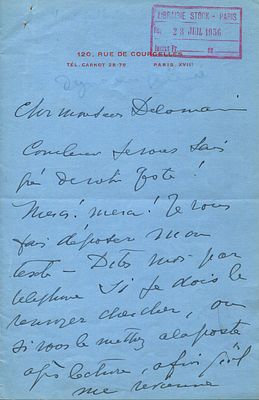 LIBRAIRIE STOCK - PARIS
23 JUIL 1936
120, RUE DE COURCELLES
TÉL. CARNOT 28-79 PARIS XVII
Cher monsieur Delamain
Combien je vous sais
gré de votre geste !
Merci ! merci ! Je vous
fais déposer mon
texte — Dites moi par
téléphone si je dois le
renvoyer chercher, ou
si vous le mettez à la poste
après lecture, afin qu'il
me revienne